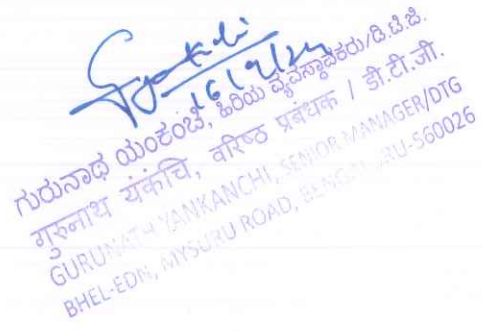 16/9/24
ಗುರುನಾಥ ಯಂಕಂಚಿ, ಹಿರಿಯ ವ್ಯವಸ್ಥಾಪಕರು/ಡಿ.ಟಿ.ಜಿ.
गुरुनाथ यंकंचि, वरिष्ठ प्रबंधक / डी.टी.जी.
GURUNATH YANKANCHI, SENIOR MANAGER/DTG
BHEL-EDN, MYSURU ROAD, BENGALURU-560026